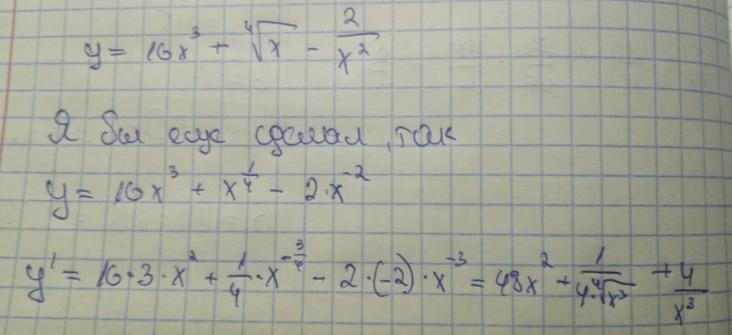 y = 16x³ + ⁴√x - 2/x²
Я бы еще сделал, так
y = 16x³ + x^(1/4) - 2·x⁻²
y' = 16·3·x² + 1/4·x^(-3/4) - 2·(-2)·x⁻³ = 48x² + 1/(4·⁴√x³) + 4/x³